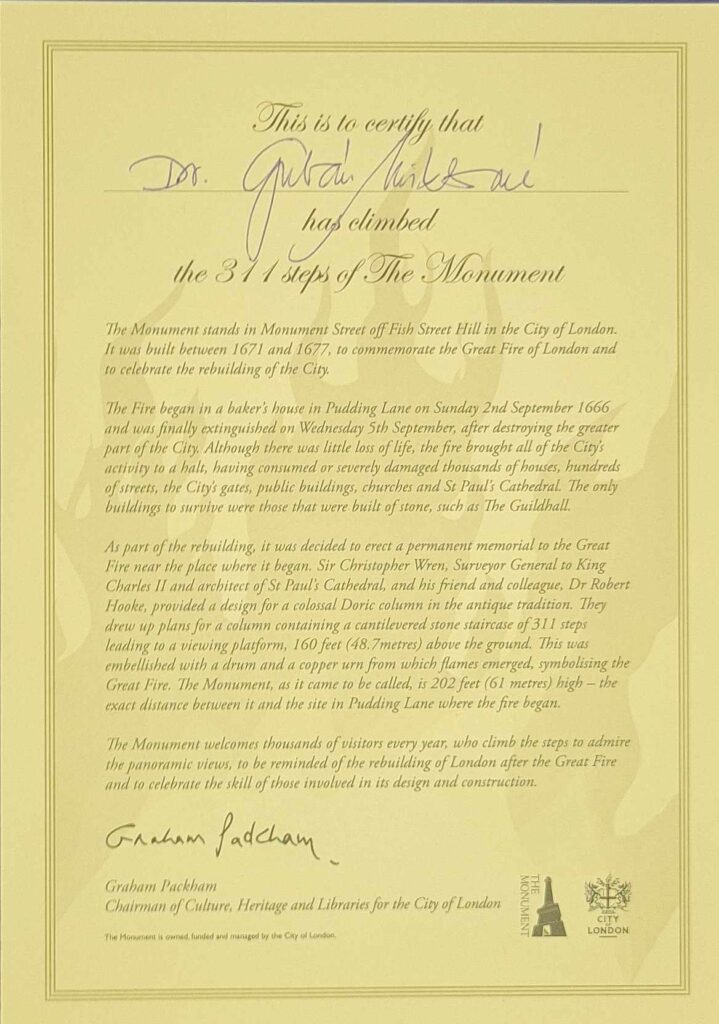 This is to certify that
Dr.
has climbed
the 311 steps of The Monument
The Monument stands in Monument Street off Fish Street Hill in the City of London.
It was built between 1671 and 1677, to commemorate the Great Fire of London and
to celebrate the rebuilding of the City.
The Fire began in a baker's house in Pudding Lane on Sunday 2nd September 1666
and was finally extinguished on Wednesday 5th September, after destroying the greater
part of the City. Although there was little loss of life, the fire brought all of the City's
activity to a halt, having consumed or severely damaged thousands of houses, hundreds
of streets, the City's gates, public buildings, churches and St Paul's Cathedral. The only
buildings to survive were those that were built of stone, such as The Guildhall.
As part of the rebuilding, it was decided to erect a permanent memorial to the Great
Fire near the place where it began. Sir Christopher Wren, Surveyor General to King
Charles II and architect of St Paul's Cathedral, and his friend and colleague, Dr Robert
Hooke, provided a design for a colossal Doric column in the antique tradition. They
drew up plans for a column containing a cantilevered stone staircase of 311 steps
leading to a viewing platform, 160 feet (48.7metres) above the ground. This was
embellished with a drum and a copper urn from which flames emerged, symbolising the
Great Fire. The Monument, as it came to be called, is 202 feet (61 metres) high – the
exact distance between it and the site in Pudding Lane where the fire began.
The Monument welcomes thousands of visitors every year, who climb the steps to admire
the panoramic views, to be reminded of the rebuilding of London after the Great Fire
and to celebrate the skill of those involved in its design and construction.
Graham Packham
Graham Packham
Chairman of Culture, Heritage and Libraries for the City of London
The Monument is owned, funded and managed by the City of London.
THE
MONUMENT
CITY
OF
LONDON